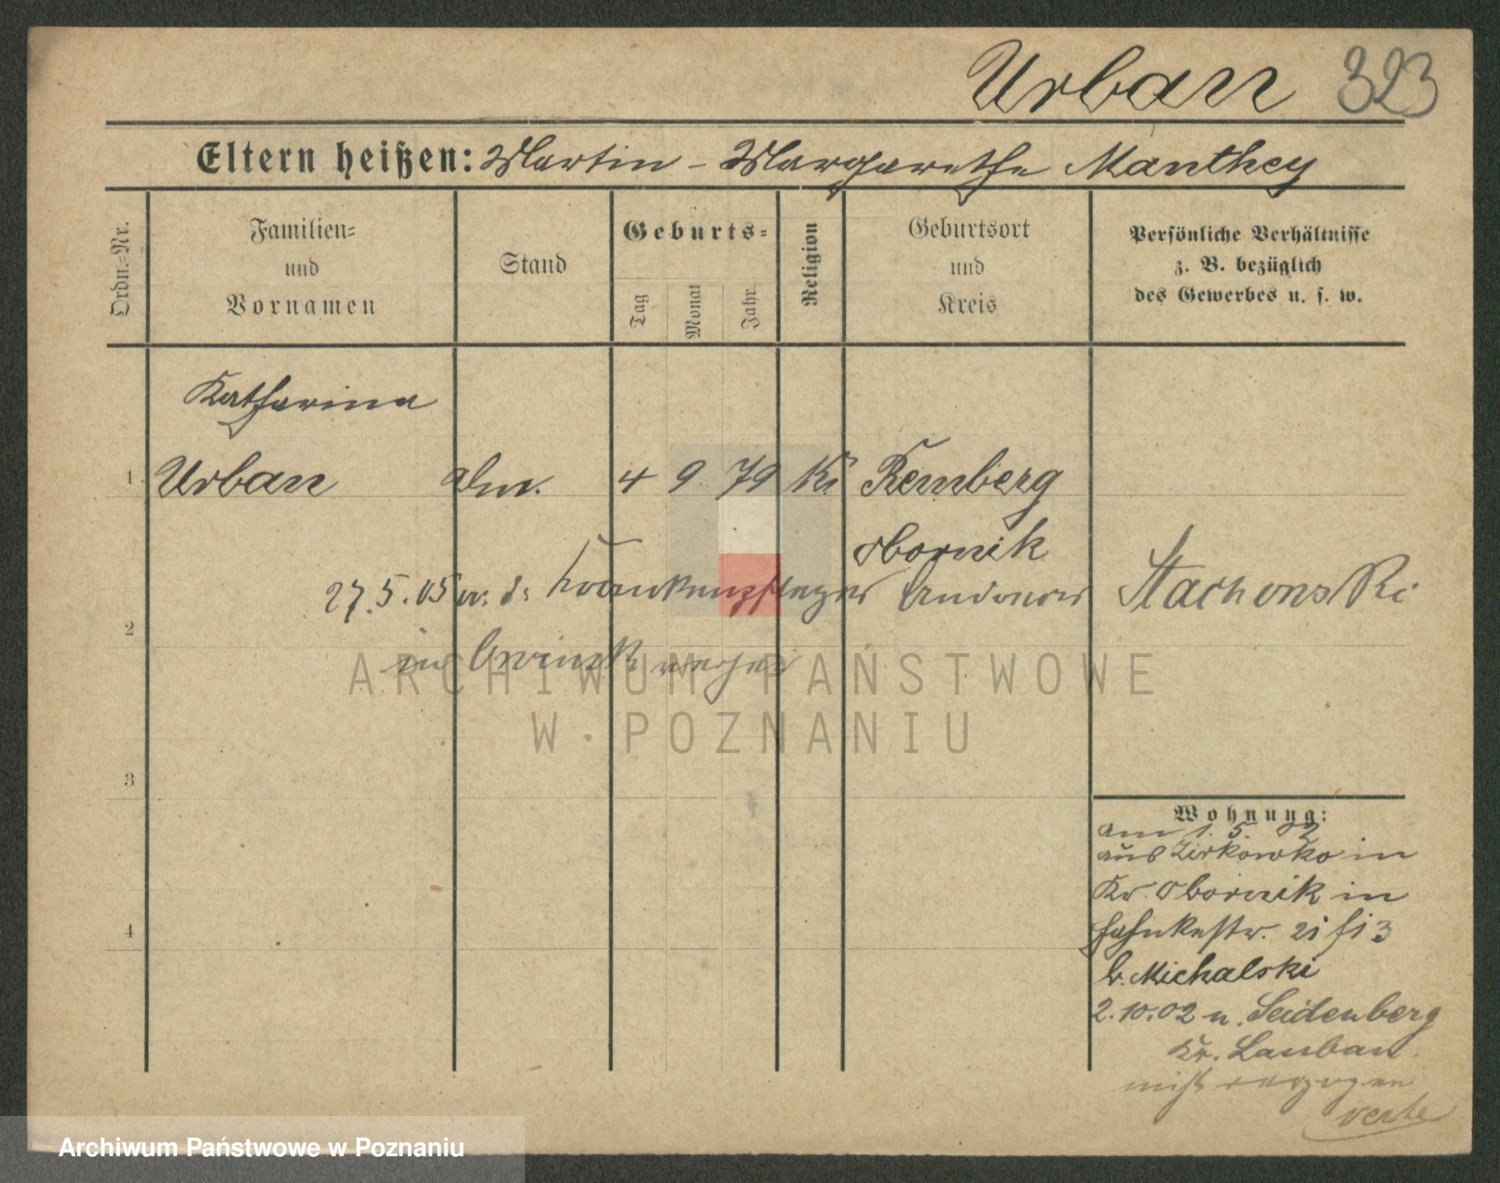 Urban 323
Eltern heißen: Martin - Margarethe Manthey
Ordn.-Nr.
Familien-
und
Vornamen
Stand
Geburts-
Tag
Monat
Jahr
Religion
Geburtsort
und
Kreis
Persönliche Verhältnisse
z. B. bezüglich
des Gewerbes u. s. w.
Katharina
1 Urban 4 9 79 Remberg
Obornik
27.5.05 Krankenpfleger Stachowski
2 in
ARCHIWUM PAŃSTWOWE
W POZNANIU
3
Wohnung:
am 1. 5. 02
aus Zirkowko in
Kr. Obornik in
4
b. Michalski
2.10.02 n. Seidenberg
Kr. Lauban
verzogen
Archiwum Państwowe w Poznaniu